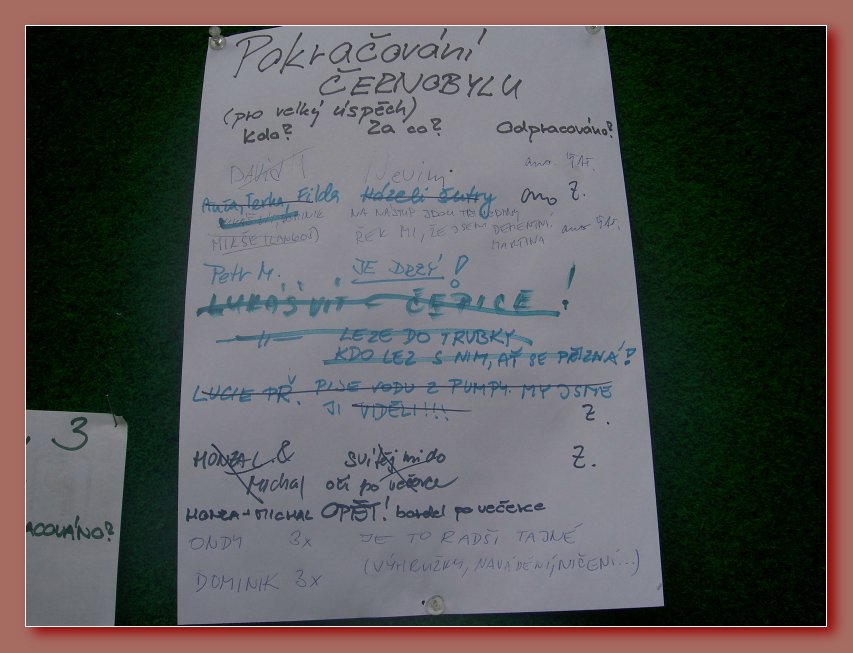 Pokračování
ČERNOBYLU
(pro velký úspěch)
Kdo? Za co? Odpracováno?
DAVID T Nevím. ano.
Anča, Terka, Filda Házeli šutry ano Z.
NA NÁSTUP JDOU
MIKŠE (LANGOŠ) ŘEK MI, ŽE JSEM DEMENTNÍ. ano
MARTINA
Petr M. JE DRZÝ!
LUKÁŠ VÍT - ČEPICE!
-11- LEZE DO TRUBKY
KDO LEZ S NIM, AŤ SE PŘIZNÁ!
LUCIE PŘ. PIJE VODU Z PUMPY. MY JSME
JI VIDĚLI!!!! Z.
HONZA L. & svítěj mi do Z.
Michal očí po večerce
HONZA + MICHAL OPĚT! bordel po večerce
ONDY 3x JE TO RADŠI TAJNÉ
DOMINIK 3x (VÝHRUŽKY, NAVÁDĚNÍ, NIČENÍ...)
. 3
ACOVÁNO?